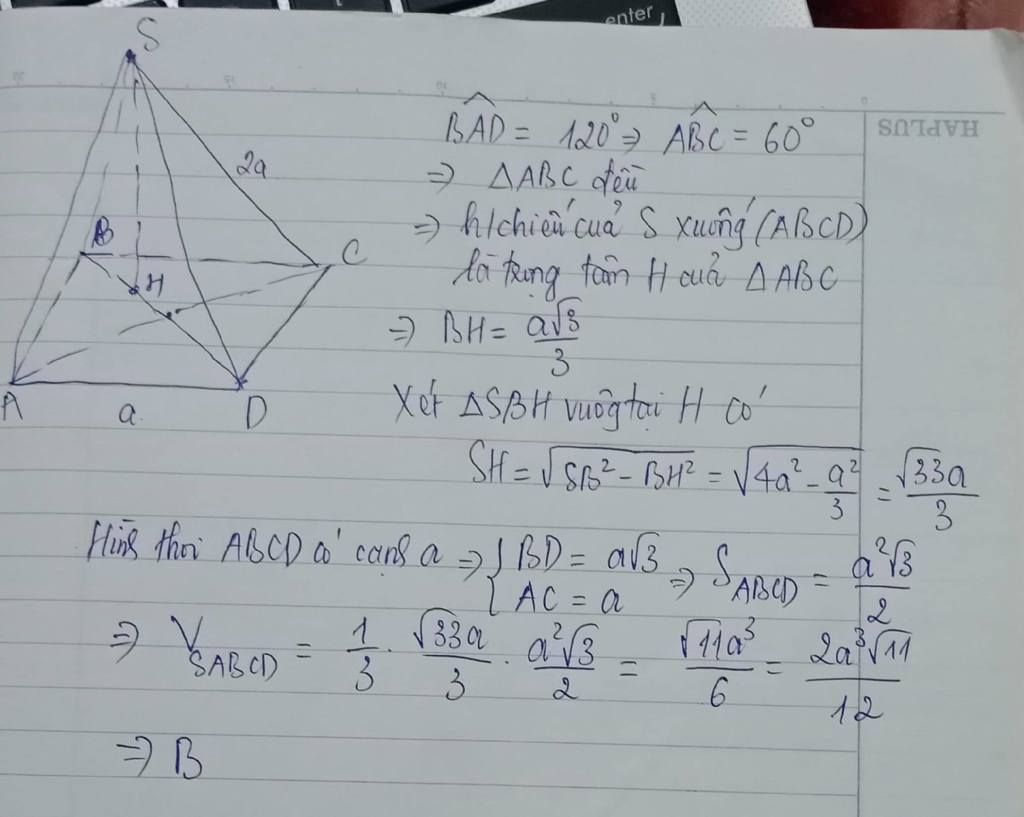 enter
HAPLUS
S
2a
B
C
H
A
a
D
BAD = 120° ⇒ ABC = 60°
⇒ ΔABC đều
⇒ h/chiếu của S xuống (ABCD)
là trọng tâm H của ΔABC
⇒ BH = a√3/3
Xét ΔSBH vuông tại H có
SH = √(SB² - BH²) = √(4a² - a²/3) = √33a/3
Hình thoi ABCD có cạnh a ⇒ { BD = a√3 ⇒ S_ABCD = a²√3/2
AC = a
⇒ V_SABCD = 1/3 . √33a/3 . a²√3/2 = √11a³/6 = 2a³√11/12
⇒ B